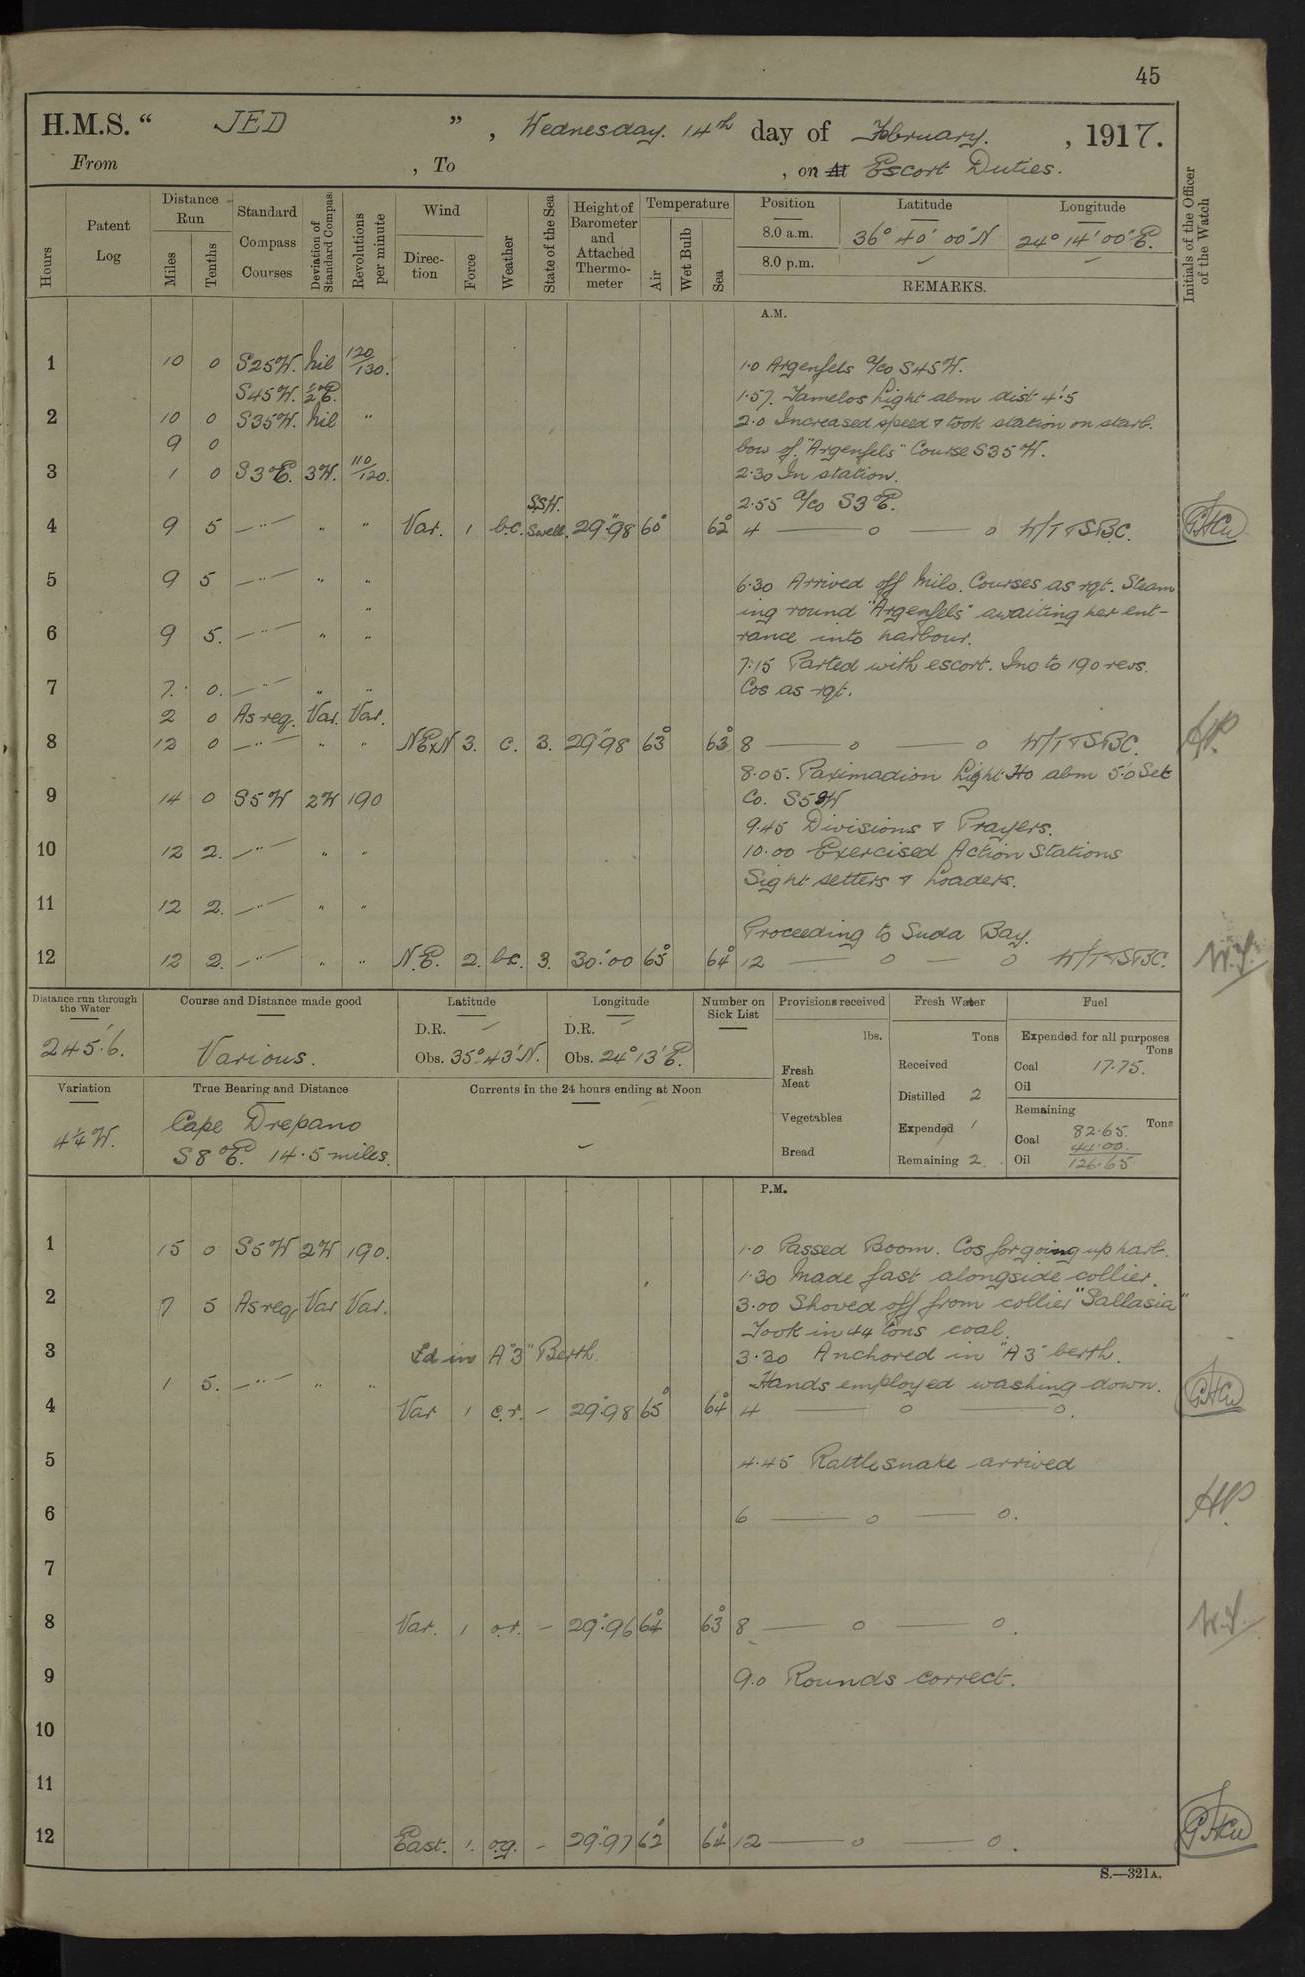 45
H.M.S. “ JED ” , Wednesday. 14th day of February. , 1917.
From , To , on At Escort Duties.
Hours
Patent Log
Distance Run
Miles
Tenths
Standard Compass Courses
Deviation of Standard Compass
Revolutions per minute
Wind
Direction
Force
Weather
State of the Sea
Height of Barometer and Attached Thermometer
Temperature
Air
Wet Bulb
Sea
Position Latitude Longitude
8.0 a.m. 36° 40' 00" N 24° 14' 00" E.
8.0 p.m. — —
REMARKS.
Initials of the Officer of the Watch
A.M.
1 10 0 S25W. Nil 120/130. 1.0 Argenfels a/co S45W.
S45W. ½°E. 1.57. Tamelos Light abm dist 4'.5
2 10 0 S35W. Nil " 2.0 Increased speed & took station on starb.
9 0 bow of "Argenfels" Course S35W.
3 1 0 S3°E. 3W. 110/120. 2.30 In station.
2.55 a/co S3°E.
SSW.
4 9 5 —"— " " Var. 1 b.c. Swell. 29".98 60° 62° 4 — o — o W/T & SBC.
5 9 5 —"— " " 6.30 Arrived off Milo. Courses as rqt. Steam
" ing round "Argenfels" awaiting her ent-
6 9 5. —"— " " rance into harbour.
7.15 Parted with escort. Inc to 190 revs.
7 7. 0. —"— " " Cos as rqt.
2 0 As req. Var. Var.
8 12 0 —"— " " NExN 3. c. 3. 29".98 63° 63° 8 — o — o W/T & SBC.
8.05. Paximadion Light Ho abm 5'.0 Set
9 14 0 S5W 2W 190 Co. S5W
9.45 Divisions & Prayers.
10 12 2. —"— " " 10.00 Exercised Action Stations
Sight setters & Loaders.
11 12 2. —"— " "
Proceeding to Suda Bay.
12 12 2. —"— " " N.E. 2. bc. 3. 30".00 65° 64° 12 — o — o W/T & SBC.
W.S.
Distance run through the Water
245'.6.
Course and Distance made good
Various.
Latitude
D.R. —
Obs. 35° 43' N.
Longitude
D.R. —
Obs. 24° 13' E.
Number on Sick List
—
Provisions received
lbs.
Fresh Meat
Vegetables
Bread
Fresh Water
Tons
Received
Distilled 2
Expended 1
Remaining 2
Fuel
Expended for all purposes
Tons
Coal 17.75.
Oil
Remaining
Tons
Coal 82.65.
44.00.
Oil 126.65
Variation
4¼ W.
True Bearing and Distance
Cape Drepano
S8°E. 14.5 miles.
Currents in the 24 hours ending at Noon
—
P.M.
1 15 0 S5W 2W 190. 1.0 Passed Boom. Cos for going up harb.
1.30 Made fast alongside collier.
2 7 5 As req Var Var. 3.00 Shoved off from collier "Sallasia"
Took in 44 tons coal.
3 Ed in A"3" Berth 3.30 Anchored in "A3" berth.
1 5. —"— " " Hands employed washing down.
4 Var 1 c.r. — 29".98 65° 64° 4 — o — o.
5 4.45 Rattlesnake arrived
6 6 — o — o.
7
8 Var. 1 o.r. — 29".96 64° 63° 8 — o — o.
W.S.
9 9.0 Rounds correct.
10
11
12 East. 1. o.g. — 29".97 62° 64° 12 — o — o.
S.—321A.